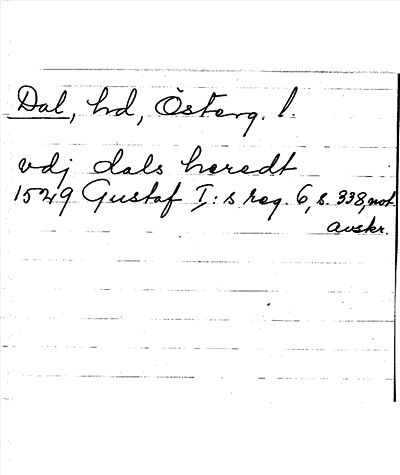 Dal, hd, Österg. l.
vdj dals heredt
1529 Gustaf I:s reg. 6, s. 338, not.
avskr.